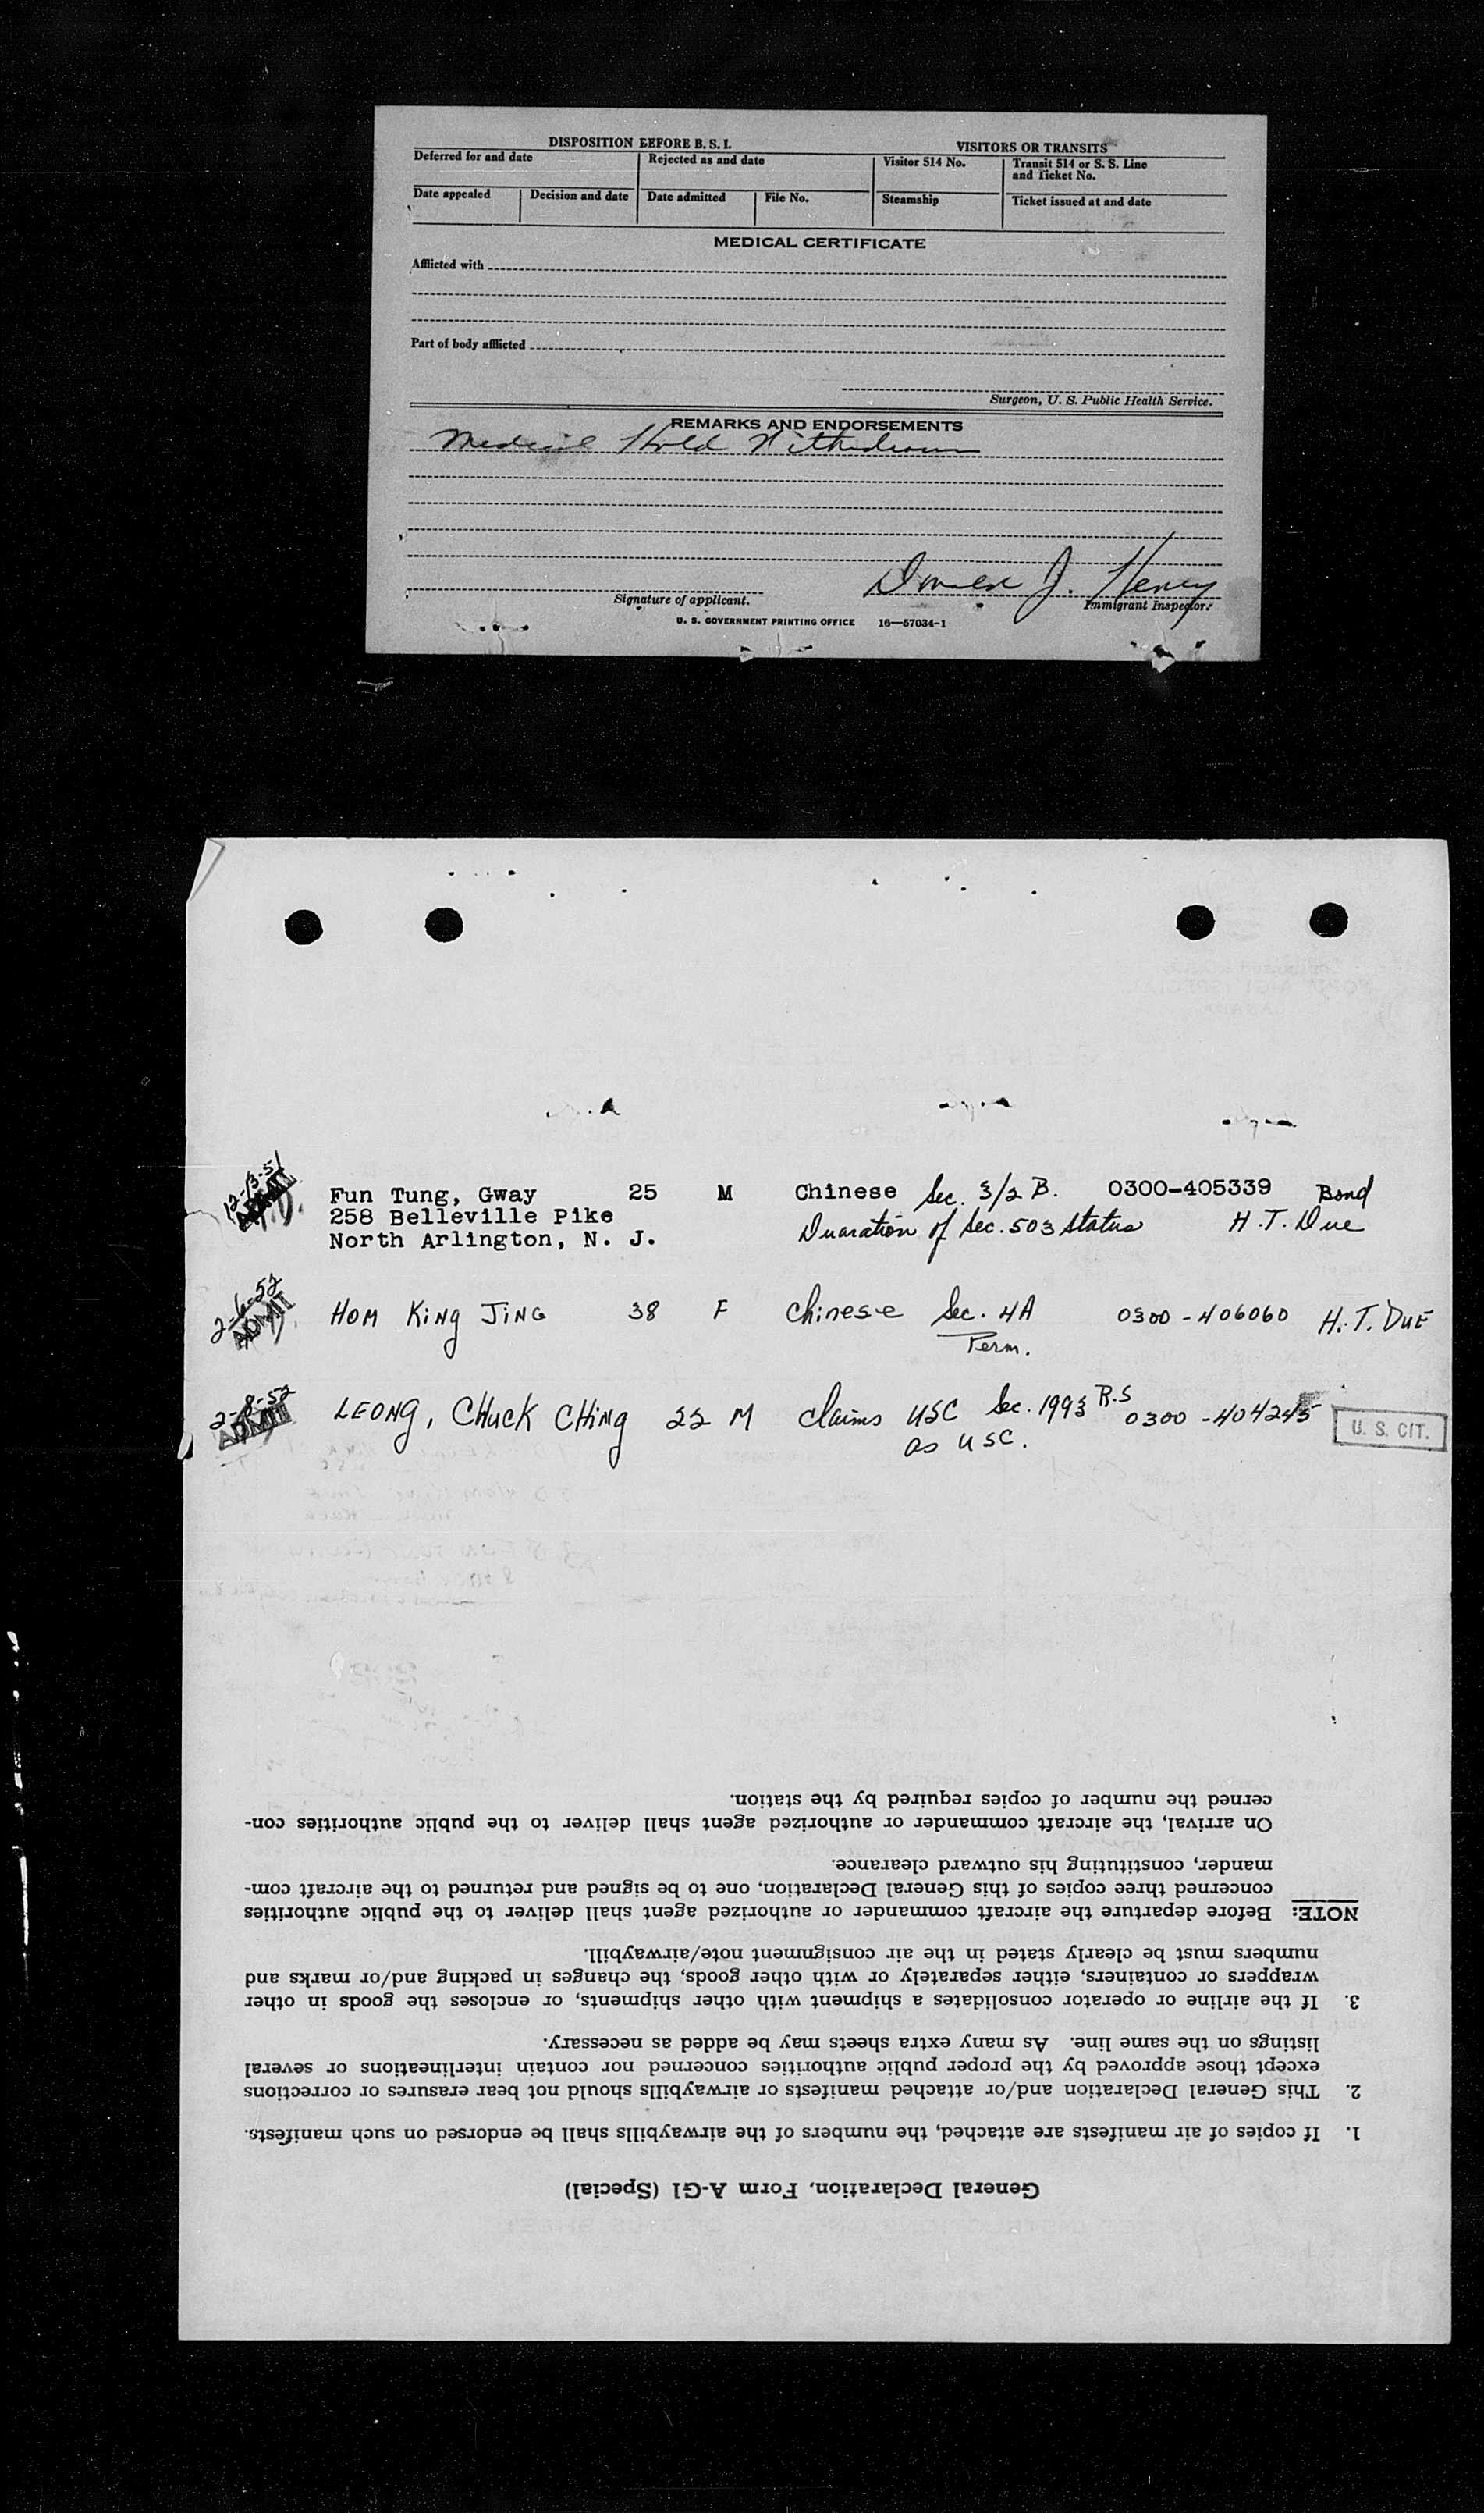 DISPOSITION BEFORE B. S. I.
VISITORS OR TRANSITS
Deferred for and date
Rejected as and date
Visitor 514 No.
Transit 514 or S. S. Line
and Ticket No.
Date appealed
Decision and date
Date admitted
File No.
Steamship
Ticket issued at and date
MEDICAL CERTIFICATE
Afflicted with
Part of body afflicted
Surgeon, U. S. Public Health Service.
REMARKS AND ENDORSEMENTS
Medical Hold Withdrawn
Donald J. Henry
Signature of applicant.
Immigrant Inspector.
U. S. GOVERNMENT PRINTING OFFICE 16—57034-1
12-13-51
ADMIT
Fun Tung, Gway 25 M Chinese Sec. 3/2 B. 0300-405339 Bond
258 Belleville Pike Duaration of Sec. 503 Status H.T. Due
North Arlington, N. J.
2-6-52
ADMIT
HOM KING JING 38 F Chinese Sec. 4A 0300-406060 H.T. DUE
Perm.
2-8-52
ADMIT
LEONG, CHUCK CHING 22 M Claims USC Sec. 1993 R.S 0300-404245 U. S. CIT.
as USC.
General Declaration, Form A-G1 (Special)
1. If copies of air manifests are attached, the numbers of the airwaybills shall be endorsed on such manifests.
2. This General Declaration and/or attached manifests or airwaybills should not bear erasures or corrections
except those approved by the proper public authorities concerned nor contain interlineations or several
listings on the same line. As many extra sheets may be added as necessary.
3. If the airline or operator consolidates a shipment with other shipments, or encloses the goods in other
wrappers or containers, either separately or with other goods, the changes in packing and/or marks and
numbers must be clearly stated in the air consignment note/airwaybill.
NOTE: Before departure the aircraft commander or authorized agent shall deliver to the public authorities
concerned three copies of this General Declaration, one to be signed and returned to the aircraft com-
mander, constituting his outward clearance.
On arrival, the aircraft commander or authorized agent shall deliver to the public authorities con-
cerned the number of copies required by the station.